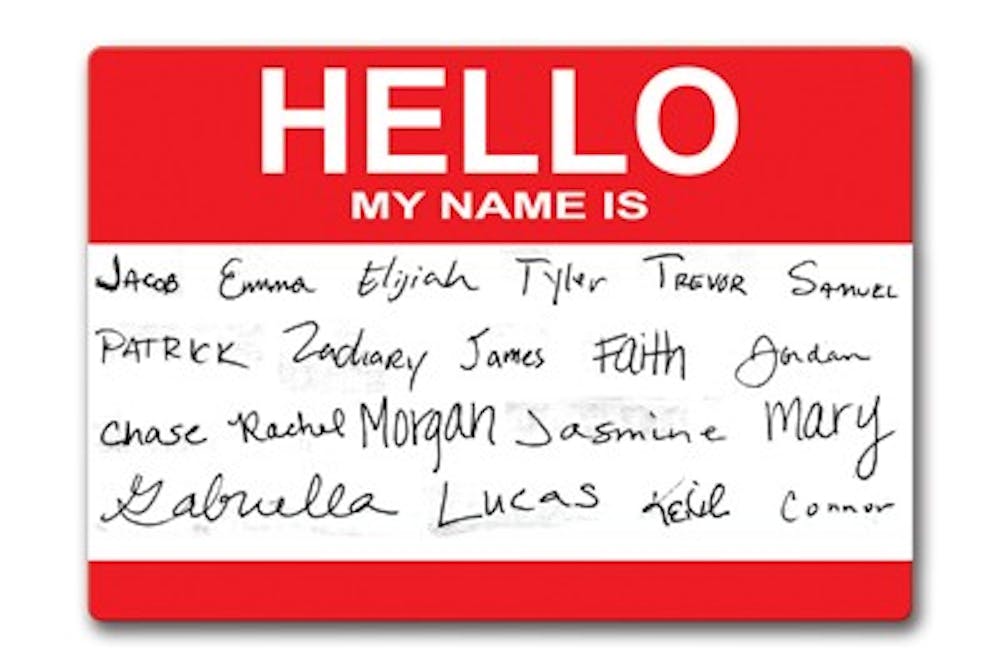 HELLO
MY NAME IS
JACOB Emma Elijiah Tyler TREVOR SAMUEL
PATRICK Zachary James Faith Jordan
Chase Rachel Morgan Jasmine Mary
Gabriella Lucas Connor